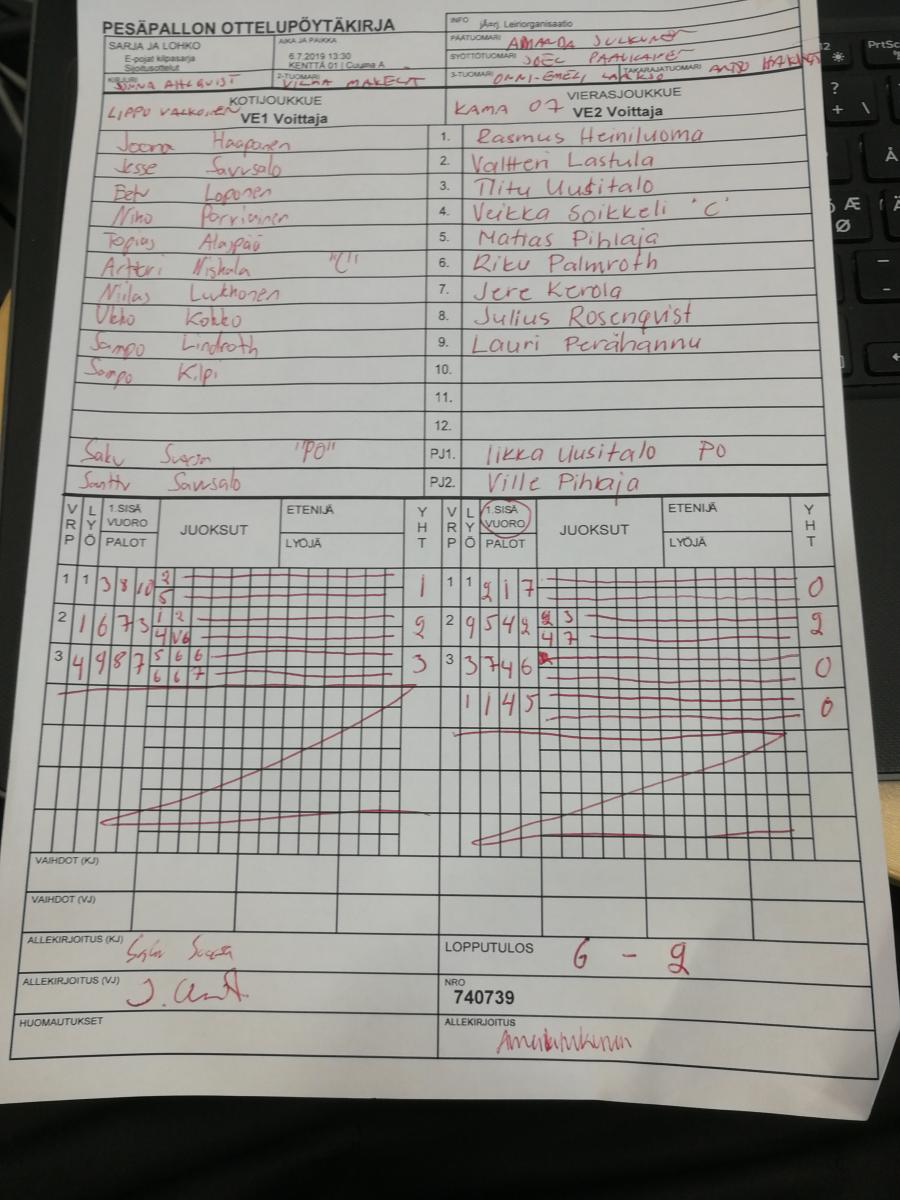 PESÄPALLON OTTELUPÖYTÄKIRJA
INFO jÃ¤rj. Leiriorganisaatio
SARJA JA LOHKO
E-pojat kilpasarja
Sijoitusottelut
AIKA JA PAIKKA
6.7.2019 13:30
KENTTÄ 01 | Cuuma A
PÄÄTUOMARI AMANDA
SYÖTTÖTUOMARI JOEL
KIRJURI
2-TUOMARI VILMA
3-TUOMARI ONNI-EMELI
TAKARAJATUOMARI
KOTIJOUKKUE
LIPPO VALKOINEN VE1 Voittaja
VIERASJOUKKUE
KAMA 07 VE2 Voittaja
Joona Haaponen 1. Rasmus Heiniluoma
Jesse Savusalo 2. Valtteri Lastula
Loponen 3. Uusitalo
Niko 4. Veikka Soikkeli "C"
Topias Alaspää 5. Matias Pihlaja
Artturi Niskala "C" 6. Riku Palmroth
Niilas Lukkonen 7. Jere Kerola
Ukko Kokko 8. Julius Rosenqvist
Sampo Lindroth 9. Lauri Perähannu
Sampo Kilpi 10.
11.
12.
Saku "PO" PJ1. Iikka Uusitalo PO
Santtu Savusalo PJ2. Ville Pihlaja
VRP LYÖ 1.SISÄ VUORO PALOT JUOKSUT ETENIJÄ LYÖJÄ YHT VRP LYÖ 1.SISÄ VUORO PALOT JUOKSUT ETENIJÄ LYÖJÄ YHT
1 1 3 8 10 2 5 1 1 1 2 1 7 0
2 1 6 7 3 1 2 4 V6 2 2 9 5 4 2 2 3 4 7 2
3 4 9 8 7 5 6 6 6 6 7 3 3 3 7 4 6 0
1 1 4 5 0
VAIHDOT (KJ)
VAIHDOT (VJ)
ALLEKIRJOITUS (KJ)
LOPPUTULOS 6 - 2
ALLEKIRJOITUS (VJ)
NRO
740739
HUOMAUTUKSET
ALLEKIRJOITUS